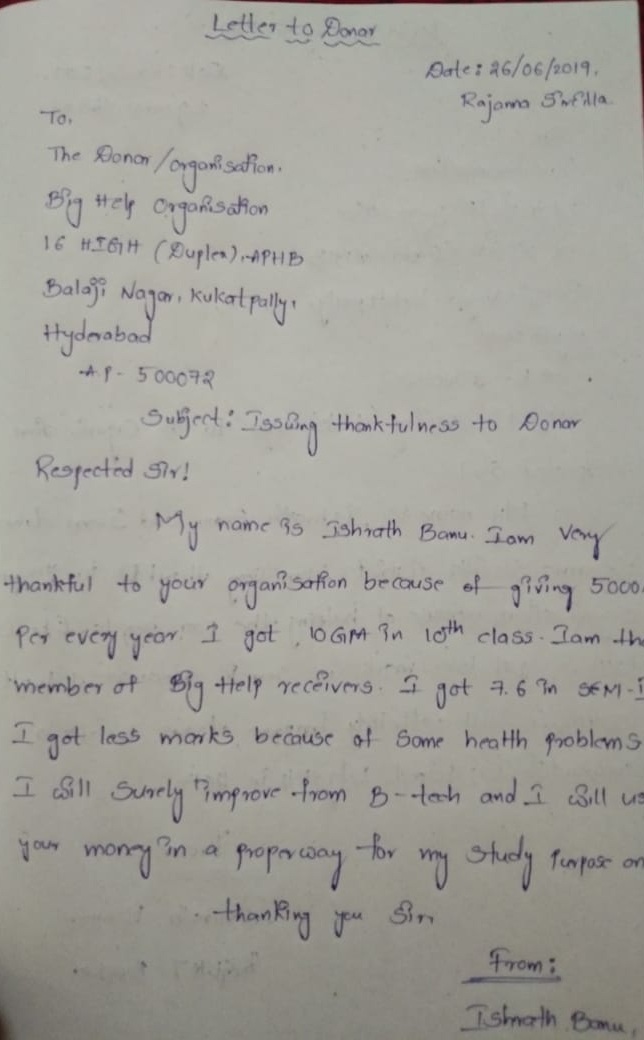 Letter to Donor
Date: 26/06/2019.
Rajanna Sirilla
To,
The Donor/organisation.
Big Help Organisation
16 HIGH (Duplex), APHB
Balaji Nagar, Kukatpally,
Hyderabad
AP - 500072
Subject: Issuing thankfulness to Donor
Respected Sir!
My name is Ishrath Banu. Iam Very
thankful to your organisation because of giving 5000.
Per every year. I got 10 GPA in 10th class. Iam the
member of Big Help receivers. I got 7.6 in SEM-I
I got less marks because of Some health problems
I will Surely improve from B-tech and I will us
your money in a proper way for my study Purpose on
thanking you Sir,
From:
Ishrath Banu,